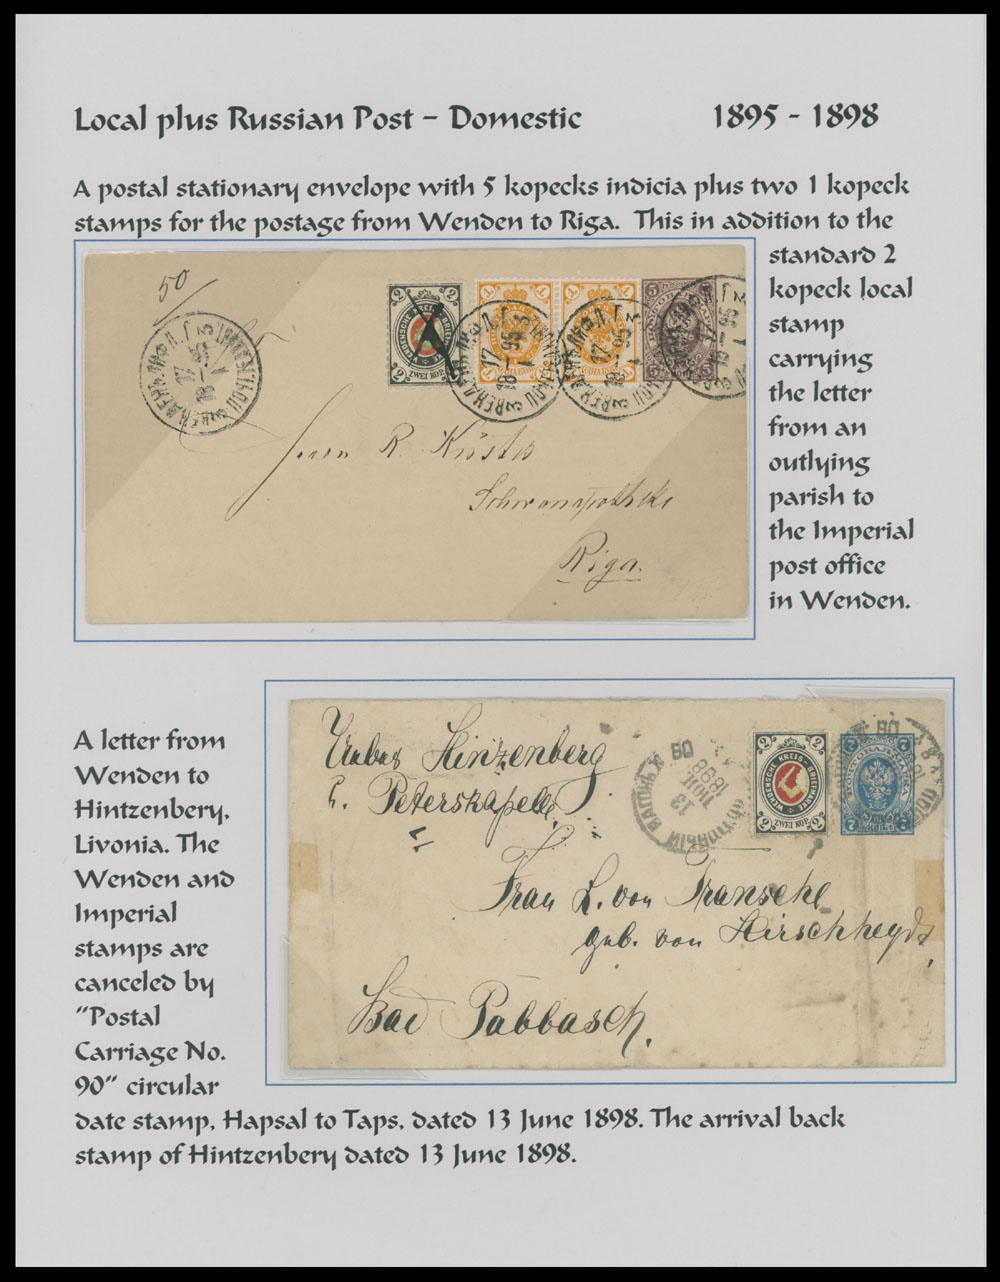 Local plus Russian Post – Domestic 1895 - 1898
A postal stationary envelope with 5 kopecks indicia plus two 1 kopeck
stamps for the postage from Wenden to Riga. This in addition to the
standard 2
kopeck local
stamp
carrying
the letter
from an
outlying
parish to
the Imperial
post office
in Wenden.
50
2 2
WENDENSCHE KREIS BRIEFMARKE
ZWEI KOP.
1 1
1 1
5 5
17
1895
17
1895
Herrn R. Küster
Schwanapotheke
Riga.
A letter from
Wenden to
Hintzenbery,
Livonia. The
Wenden and
Imperial
stamps are
canceled by
“Postal
Carriage No.
90” circular
date stamp, Hapsal to Taps, dated 13 June 1898. The arrival back
stamp of Hintzenbery dated 13 June 1898.
Ueber Hinzenberg
p. Peterskapelle
ПОЧТОВЫЙ ВАГОНЪ
13
1898
90
2 2
WENDENSCHE KREIS-BRIEFMARKE
ZWEI KOP.
2 2
7 7
7 7
Frau L. von Transehe
geb. von Hirschheydt,
Bad Pabbasch.